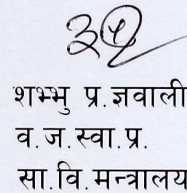 शम्भु प्र. ज्ञवाली
व.ज.स्वा.प्र.
सा.वि.मन्त्रालय